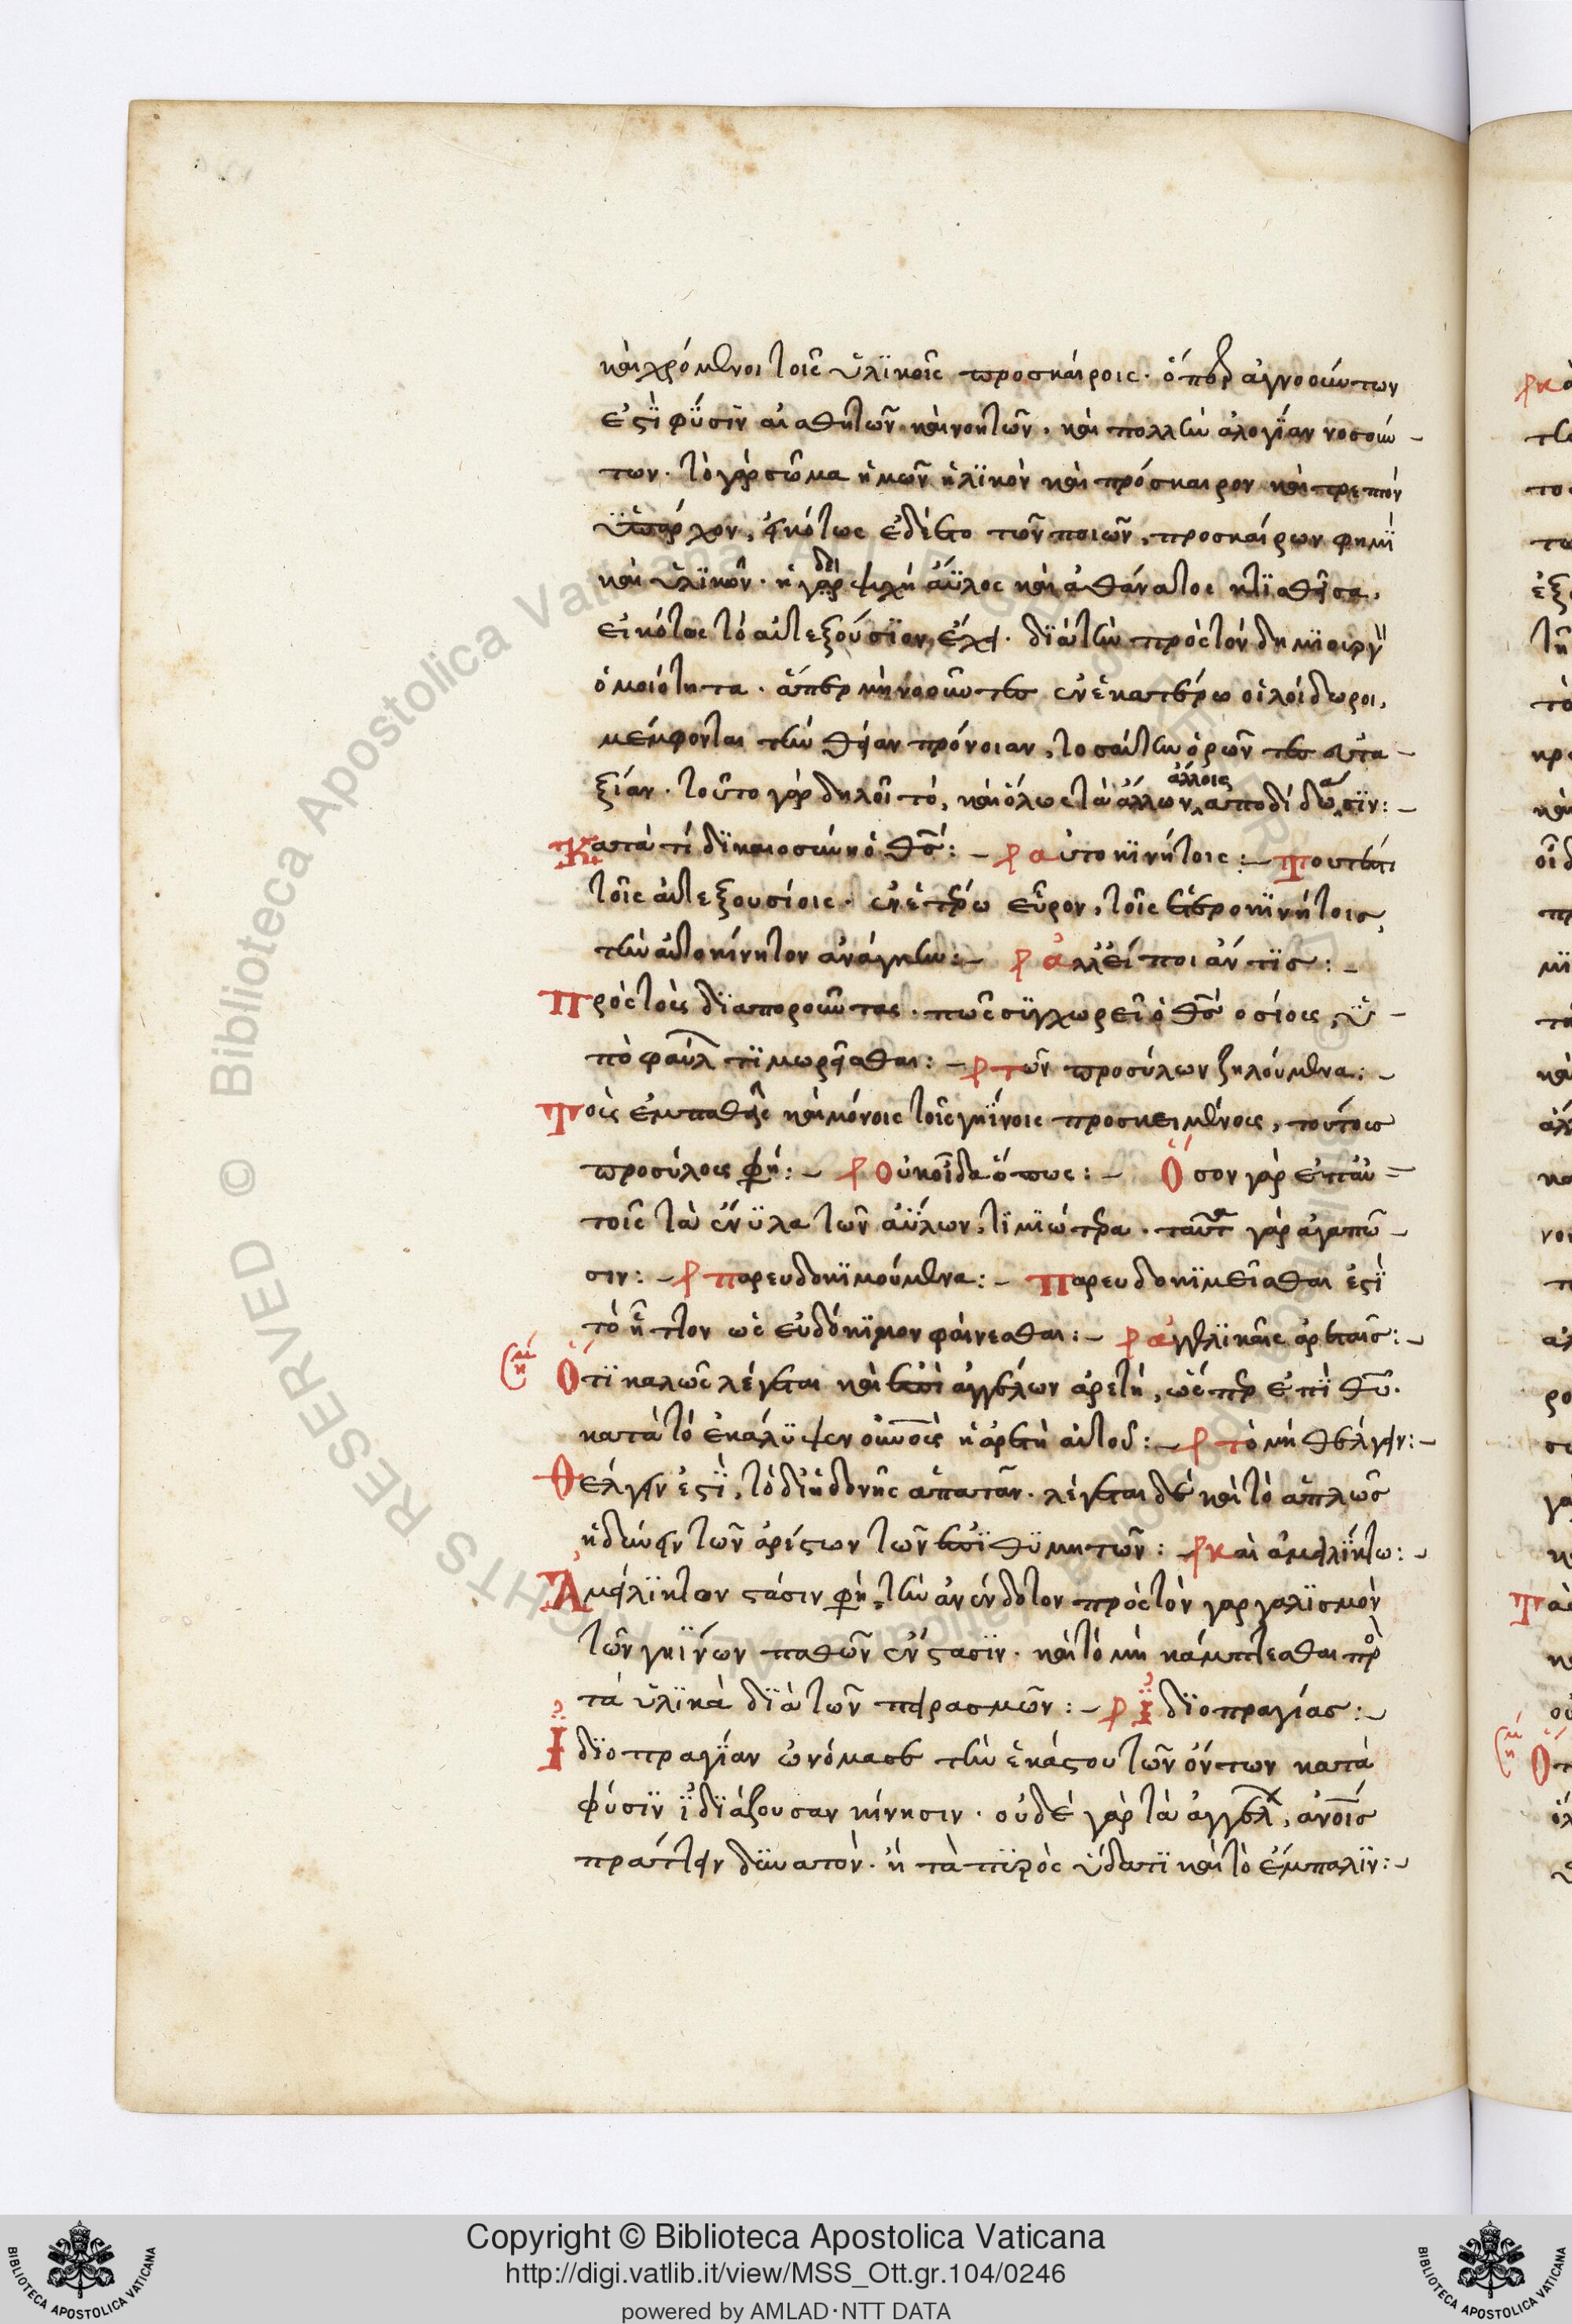 καὶ χρόμενοι τοῖς ὑλϊκοῖς προσκαίροις. ὅπερ ἀγνοούντων
ἐστὶ φύσϊν αἰσθητῶν καὶ νοητῶν. καὶ πολλὴν ἀλογΐαν νοσούν-
των. τὸ γὰρ σῶμα ἡμῶν ὑλϊκὸν καὶ πρόσκαιρον καὶ τρεπτὸν
ὑπάρχον, εἰκότως ἐδέετο τῶν ποιῶν, προσκαίρων φημῒ
καὶ ὑλϊκῶν. ἡ γὰρ δὲ ψυχὴ ἄϋλος καὶ ἀθάνατος κτϊσθεῖσα,
εἰκότως τὸ αὐτεξούσϊον ἔχει. δϊὰ τὴν πρὸς τὸν δημϊουργὸν
ὁμοιότητα. ἅπερ μὴ νοοῦντες ἐν ἑκατέρω οἱ λοίδωροι,
μέμφονται τὴν θείαν πρόνοιαν, τοσαύτην ὁρῶντες εὐτα-
ξίαν. τοῦτο γὰρ δηλοῖ τό, καὶ ὅλως τὰ ἄλλων ἄλλοις ἀποδίδωσϊν:-
Κατὰ τί δϊκαιοσύνη ὁ θσ: - αὐτοκϊνήτοις: - Τουτέστι
τοῖς αὐτεξουσίοις. ἐν ἑτέρω εὗρον, τοῖς ἑτεροκϊνήτοις,
τὴν αὐτοκίνητον ἀνάγκην: - ἀλλ' εἴποι ἄν τϊς: -
Πρὸς τοὺς δϊαποροῦντας. πῶς συγχωρεῖ ὁ θσ ὁσίους, ὑ-
πὸ φαύλ τϊμωρεῖσθαι: - τῶν προσύλων ζηλούμενα: -
Τοὺς ἐμπαθεῖς καὶ μόνοις τοῖς γηΐνοις προσκειμένους, τούτους
προσύλους φη: - Οὐκ οἶδα ὅπως: - Ὅσον γὰρ ἐπ' αὐ=
τοῖς τὰ ἔνϋλα τῶν ἀΰλων, τϊμϊώτερα. ταῦτα γὰρ ἀγαπῶ-
σιν: - παρευδοκϊμούμενα: - Παρευδοκϊμεῖσθαι ἐστῒ
τὸ ἧττον ὡς εὐδόκϊμον φαίνεσθαι: - ἀγγελϊκαῖς ἀρεταῖς: -
Ὅτϊ καλῶς λέγεται καὶ ἐπὶ ἀγγέλων ἀρετή, ὥσπερ ἐπῒ θυ.
κατὰ τὸ ἐκάλϋψεν οὐνοὺς ἡ ἀρετὴ αὐτοῦ: - τὸ μὴ θέλγειν: -
Θέλγειν ἐστῒ, τὸ δι' ἡδονῆς ἀπατᾶν. λέγεται δὲ καὶ τὸ ἁπλῶς
ἡδύνειν τῶν ἀρίστων τῶν ἐπϊθϋμητῶν: - καὶ ἀμείλϊκτω: -
Ἀμείλϊκτον στάσιν φη, τὴν ἀνένδοτον πρὸς τὸν γαργαλϊσμὸν
τῶν γηΐνων παθῶν ἔνστασϊν. καὶ τὸ μὴ κάμπτεσθαι πρὸς
τὰ ὑλϊκὰ δϊὰ τῶν πειρασμῶν: - Ἰδϊοπραγίας: -
Ἰδϊοπραγΐαν ὠνόμασε τὴν ἑκάστου τῶν ὄντων κατὰ
φύσϊν ἰδϊάζουσαν κίνησιν. οὐδὲ γὰρ τὰ ἀγγέλ, ἀνοις
πράττειν δϋνατόν. ἢ τὰ πϋρὸς ὕδατϊ καὶ τὸ ἔμπαλϊν: -
Copyright © Biblioteca Apostolica Vaticana
http://digi.vatlib.it/view/MSS_Ott.gr.104/0246
powered by AMLAD·NTT DATA